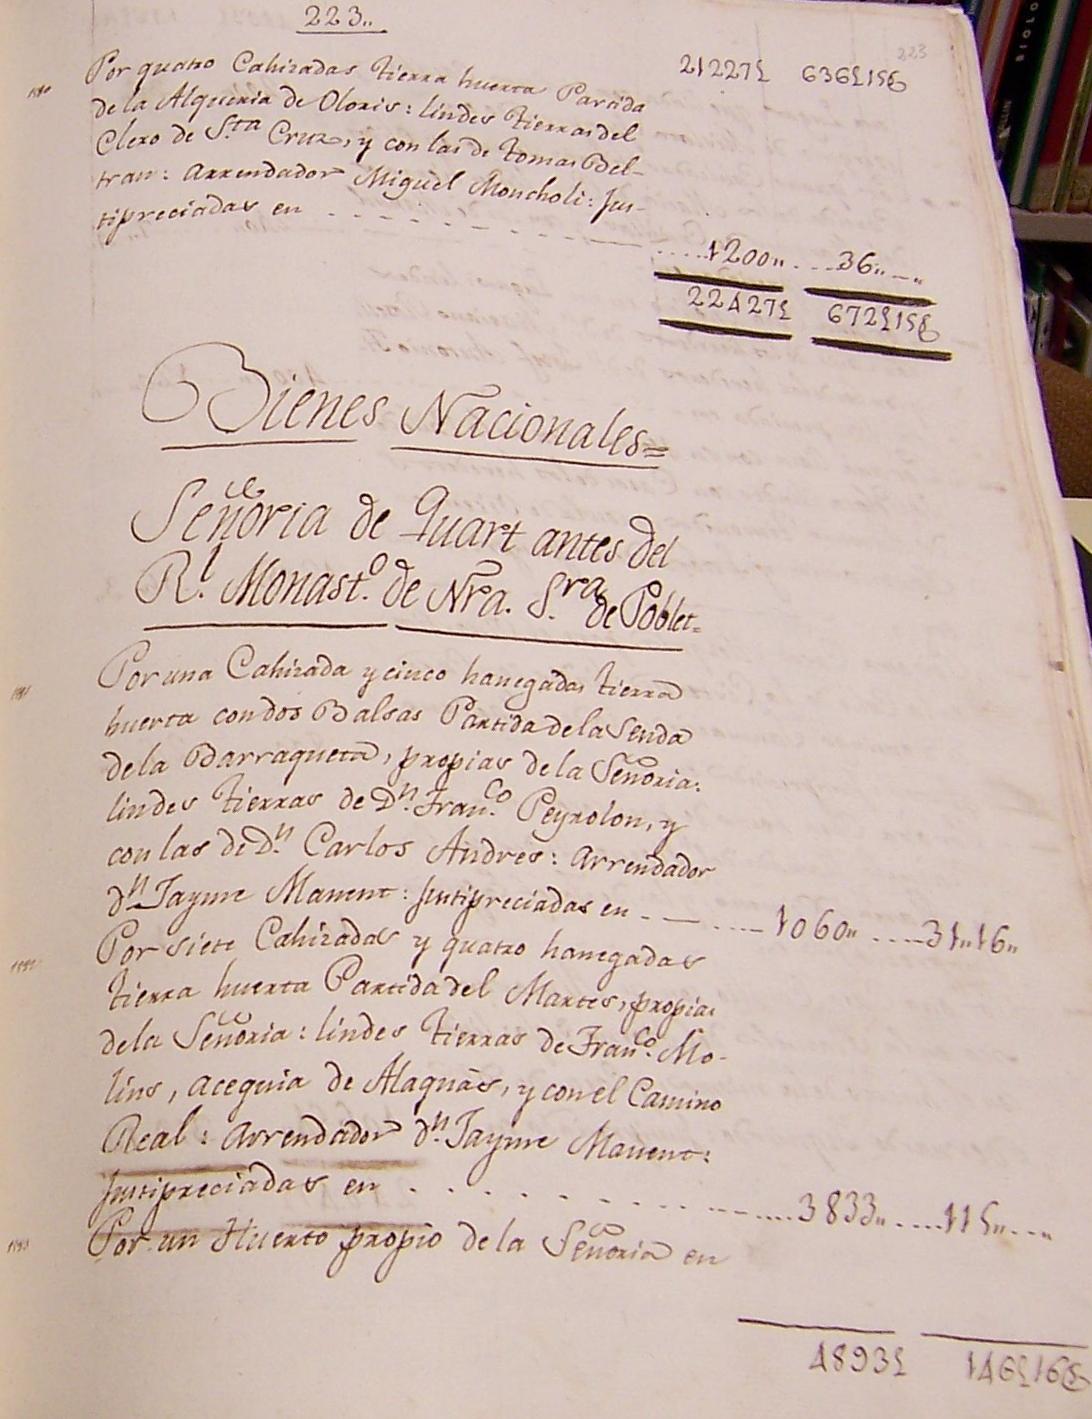 223..
223
Por quatro Cahizadas tierra huerta Partida 21227£ 636£15₰
de la Alqueria de Oloris: lindes tierras del
Clero de S.ta Cruz, y con las de tomas Bel-
tran: Arrendador Miguel Moncholi: Jus-
tipreciadas en 1200" 36"
22427£ 672£15₰
Bienes Nacionales=
Señoria de Quart antes del
R.l Monast.o de Nra. S.ra de Poblet=
Por una Cahizada y cinco hanegadas tierra
huerta con dos Balsas Partida de la Senda
de la Barraqueta, propias de la Señoria:
lindes tierras de D.n Fran.co Peyrolon, y
con las de D.n Carlos Andres: Arrendador
d.n Jayme Manent: Justipreciadas en 1060" 31"16"
Por siete Cahizadas y quatro hanegadas
tierra huerta Partida del Martes, propias
de la Señoria: lindes tierras de Fran.co Mo-
lins, acequia de Alaquàs, y con el Camino
Real: Arrendador d.n Jayme Manent:
Justipreciadas en 3833" 115"
Por un Huerto propio de la Señoria en
4893£ 146£16₰